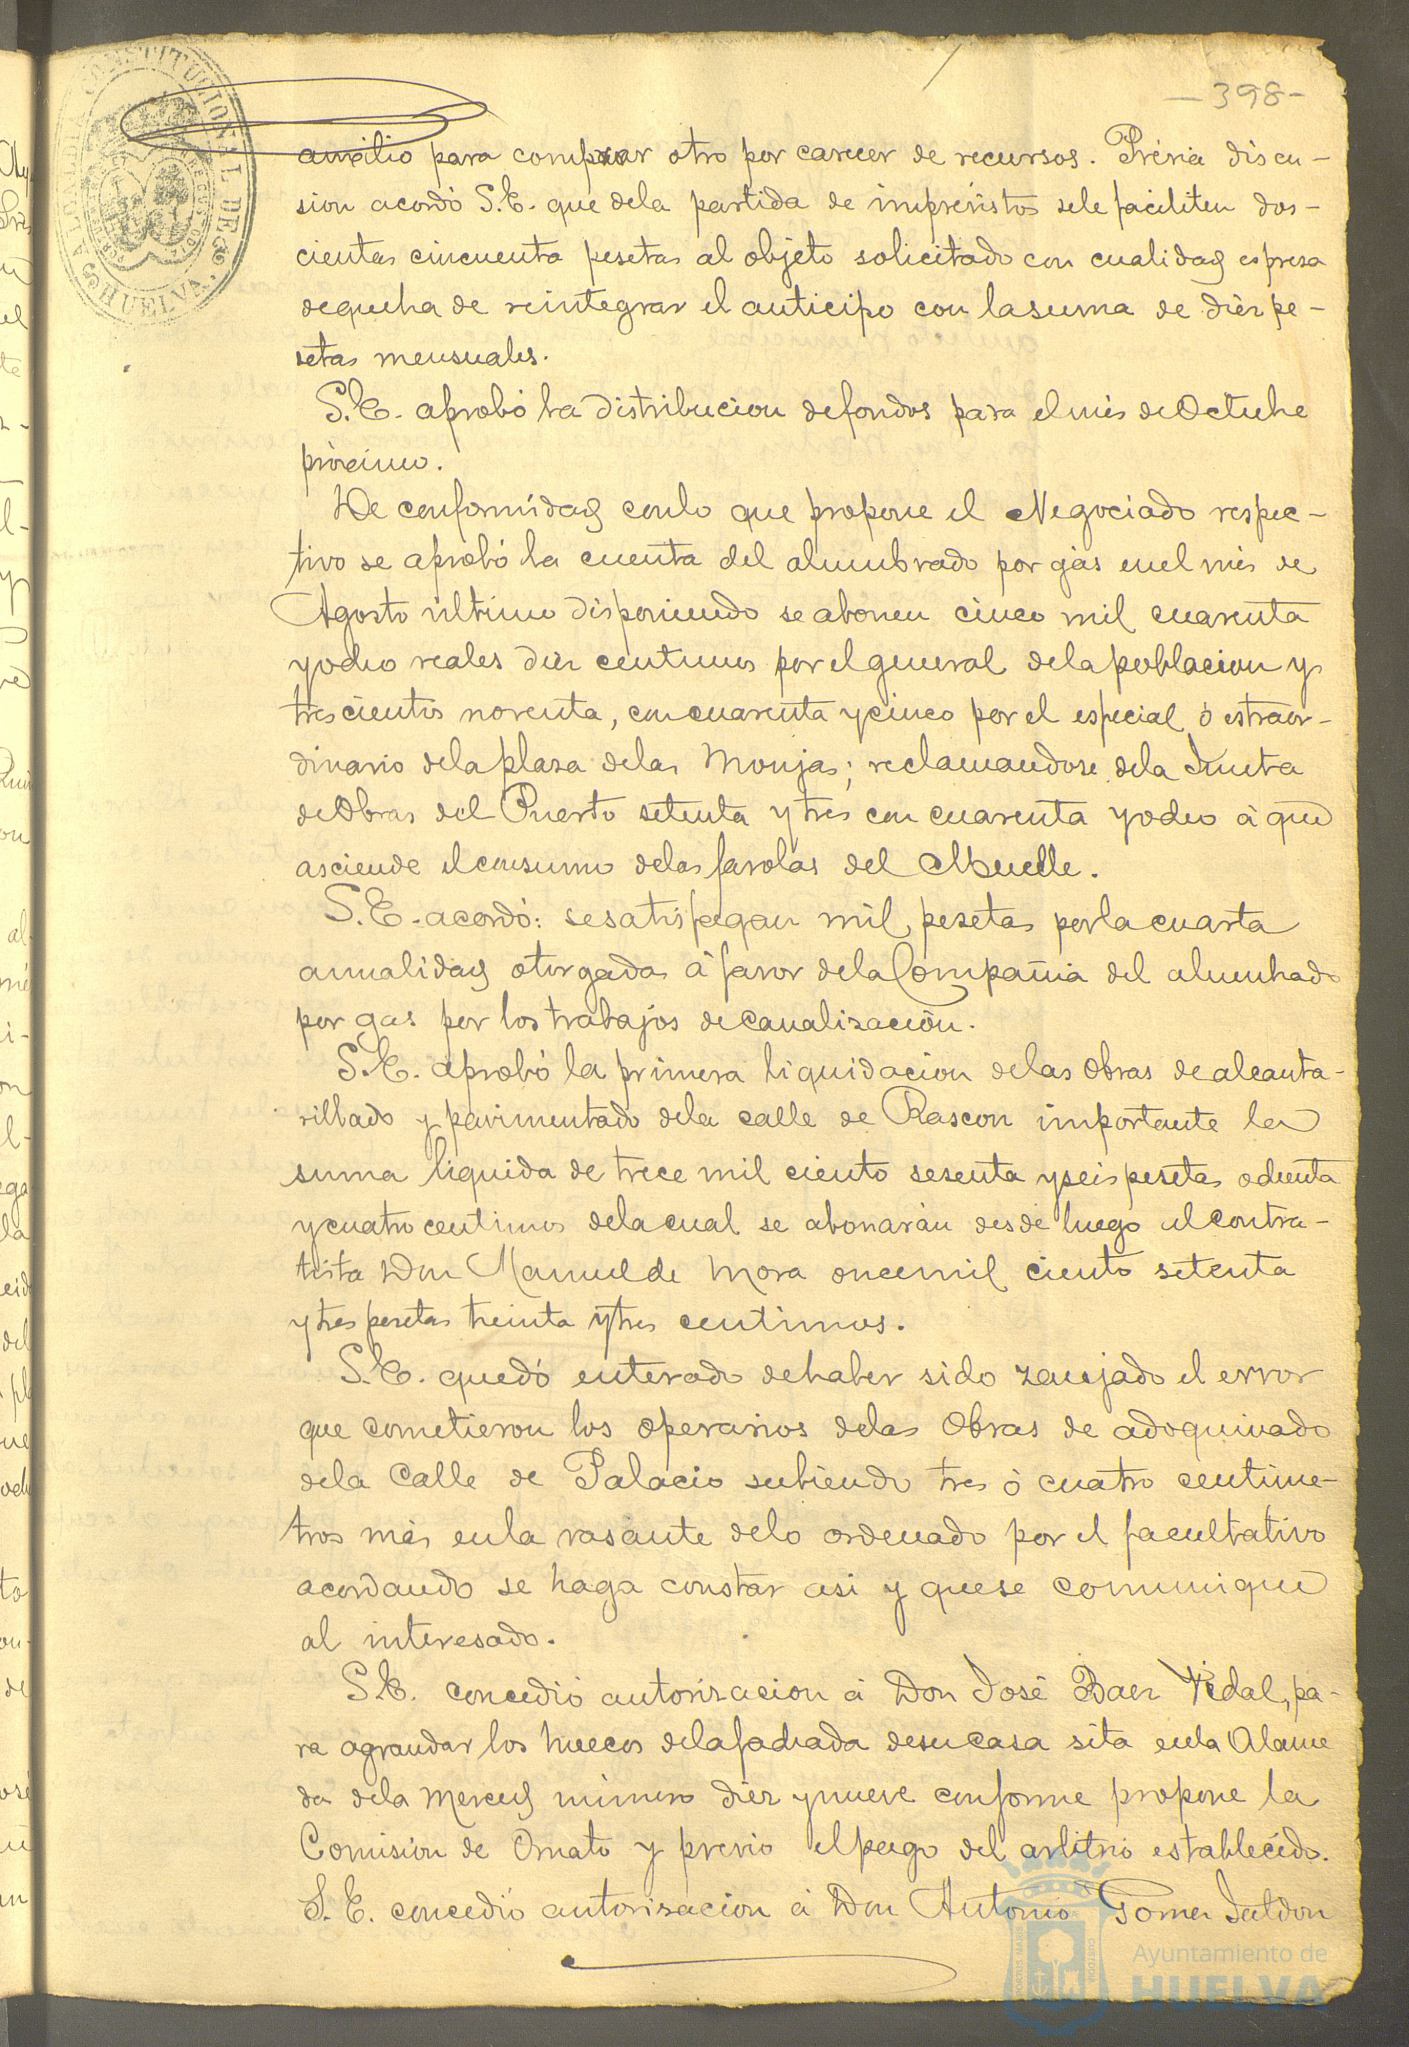 -398-
ALCALDIA CONSTITUCIONAL DE HUELVA
auxilio para comprar otro por carecer de recursos. Prévia discu-
sion acordó S.E. que dela partida de imprevistos sele faciliten dos-
cientas cincuenta pesetas al objeto solicitado con cualidad espresa
dequeha de reintegrar el anticipo con lasuma de diez pe-
setas mensuales.
S.E. aprobó la distribucion defondos para elmes deOctubre
próximo.
De conformidad conlo que propone el Negociado respec-
tivo se aprobó la cuenta del alumbrado por gas enel mes de
Agosto último disponiendo se abonen cinco mil cuarenta
yocho reales diez centimos por elgeneral dela poblacion y
trescientos noventa, con cuarenta ycinco por el especial ó estraor-
dinario dela plaza delas Monjas; reclamandose dela Junta
deObras del Puerto setenta ytres con cuarenta yocho á que
asciende elconsumo delas farolas del Muelle.
S.E. acordó: sesatisfagan mil pesetas porla cuarta
anualidad otorgada á favor dela Compañia del alumbrado
por gas por los trabajos decanalización.
S.E. aprobó la primera liquidacion delas obras dealcanta-
rillado y pavimentado dela calle de Rascon importante la
suma liquida de trece mil ciento sesenta yseis pesetas ochenta
ycuatro centimos delacual se abonarán desde luego alcontra-
tista Don Manuel de Mora oncemil ciento setenta
ytres pesetas treinta ytres centimos.
S.E. quedó enterado dehaber sido zanjado el error
que cometieron los operarios delas Obras de adoquinado
dela Calle de Palacio subiendo tres ó cuatro centime-
tros más enla rasante delo ordenado por el facultativo
acordando se haga constar asi y quese comunique
al interesado.
S.E. concedió autorizacion á Don José Baez Vidal, pa-
ra agrandar los huecos delafachada desucasa sita enla Alame
da dela Merced número diez ynueve conforme propone la
Comision de Ornato y previo elpago del arbitrio establecido.
S.E. concedió autorizacion á Don Antonio Gomez
Ayuntamiento de
HUELVA